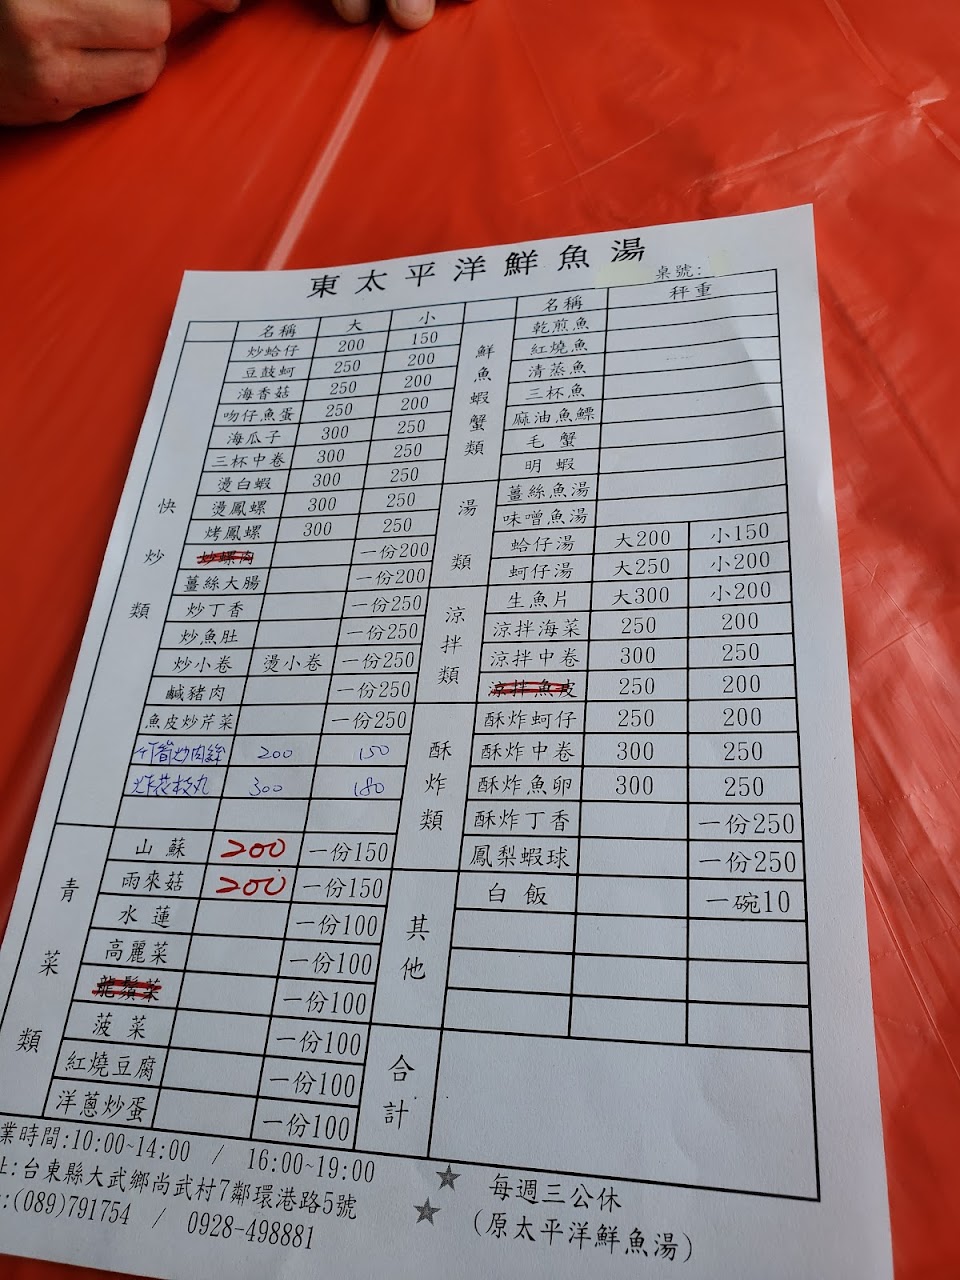 東太平洋鮮魚湯
桌號:
名稱 大 小
炒蛤仔 200 150
豆鼓蚵 250 200
海香菇 250 200
吻仔魚蛋 250 200
海瓜子 300 250
三杯中卷 300 250
燙白蝦 300 250
燙鳳螺 300 250
烤鳳螺 300 250
炒螺肉 一份200
薑絲大腸 一份200
炒丁香 一份250
炒魚肚 一份250
炒小卷 燙小卷 一份250
鹹豬肉 一份250
魚皮炒芹菜 一份250
竹筍炒肉絲 200 150
炸花枝丸 300 180
快炒類
山蘇 200 一份150
雨來菇 200 一份150
水蓮 一份100
高麗菜 一份100
龍鬚菜 一份100
菠菜 一份100
紅燒豆腐 一份100
洋蔥炒蛋 一份100
青菜類
名稱 秤重
鮮魚蝦蟹類
乾煎魚
紅燒魚
清蒸魚
三杯魚
麻油魚鰾
毛蟹
明蝦
湯類
薑絲魚湯
味噌魚湯
蛤仔湯 大200 小150
蚵仔湯 大250 小200
涼拌類
生魚片 大300 小200
涼拌海菜 250 200
涼拌中卷 300 250
涼拌魚皮 250 200
酥炸類
酥炸蚵仔 250 200
酥炸中卷 300 250
酥炸魚卵 300 250
酥炸丁香 一份250
鳳梨蝦球 一份250
其他
白飯 一碗10
合計
業時間:10:00~14:00 / 16:00~19:00
址:台東縣大武鄉尚武村7鄰環港路5號
:(089)791754 / 0928-498881
★ 每週三公休
★ (原太平洋鮮魚湯)